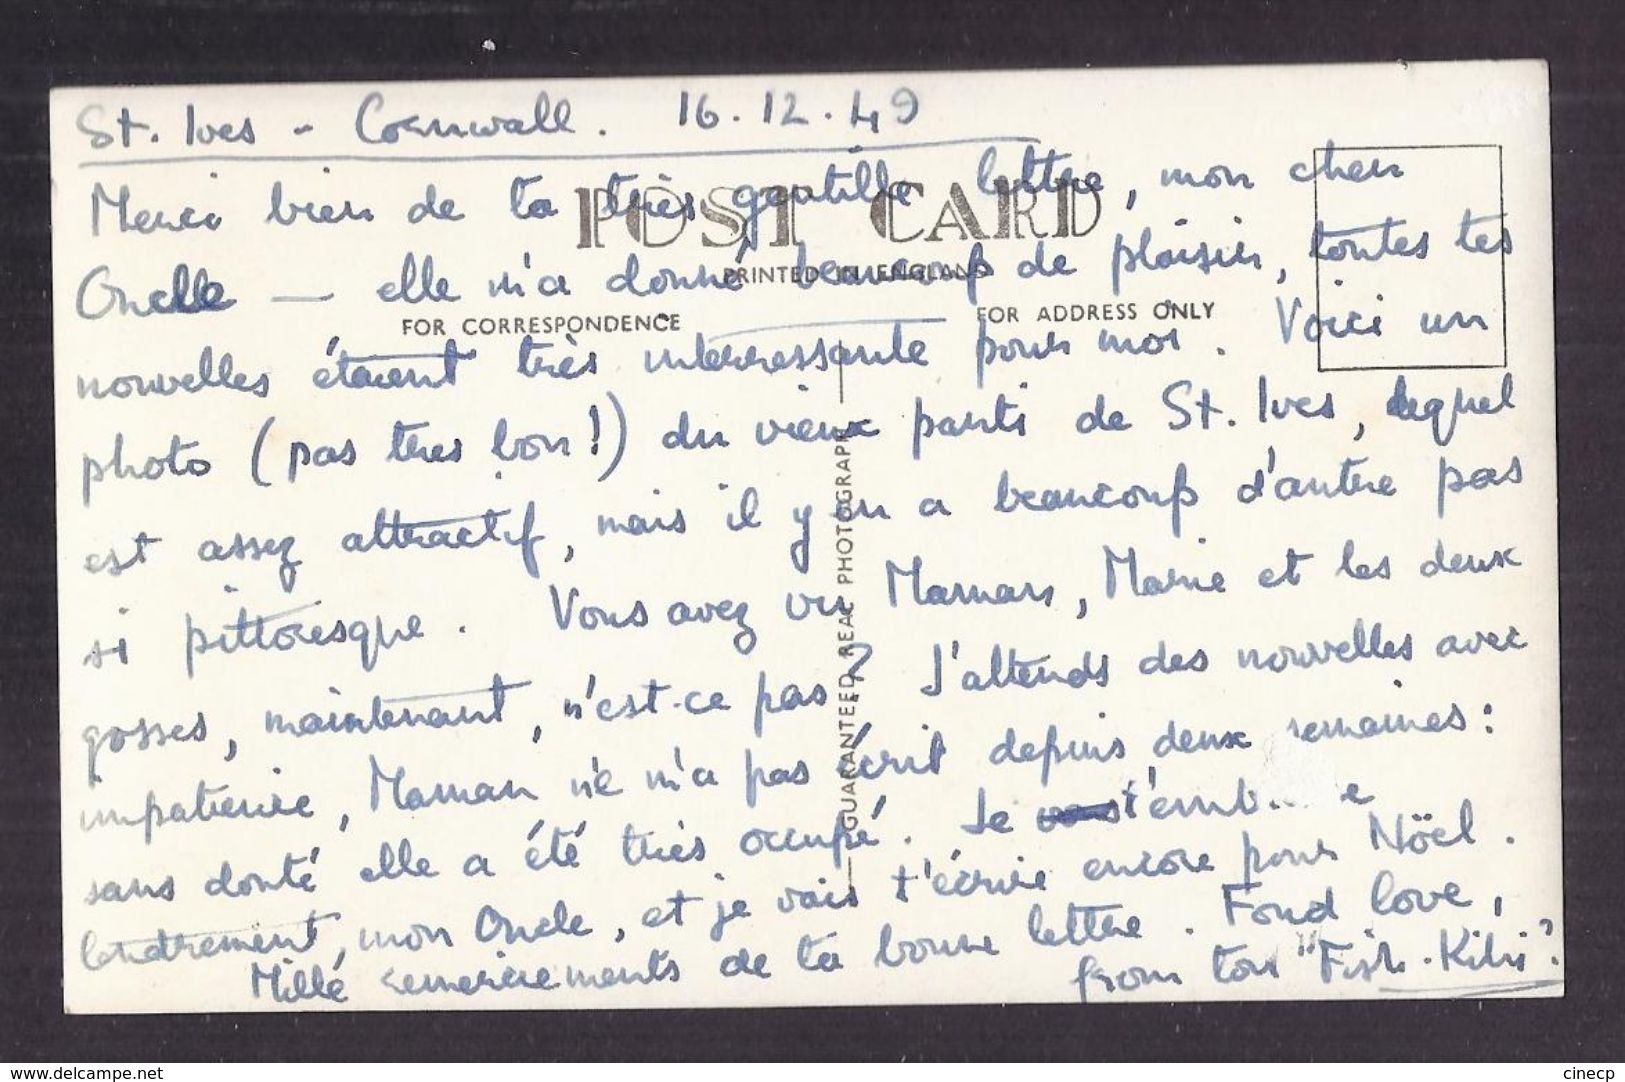 St. Ives - Cornwall. 16.12.49
POST CARD
PRINTED IN ENGLAND
FOR CORRESPONDENCE
FOR ADDRESS ONLY
GUARANTEED REAL PHOTOGRAPH
Merci bien de ta très gentille lettre, mon cher
Oncle — elle m'a donné beaucoup de plaisir, toutes tes
nouvelles étaient très interressante pour moi. Voici un
photo (pas tres bon!) du vieux parti de St. Ives, lequel
est assez attractif, mais il y en a beaucoup d'autre pas
si pittoresque. Vous avez vu Maman, Marie et les deux
gosses, maintenant, n'est-ce pas? J'attends des nouvelles avec
impatience, Maman n'e m'a pas écrit depuis deux semaines:
sans douté elle a été très occupé. Je t'emb e
tendrement, mon Oncle, et je vais t'écrire encore pour Nöel.
Millé remerciements de ta bonne lettre. Fond love,
from ton "Fish-Kiki"?
delcampe.net
cinecp